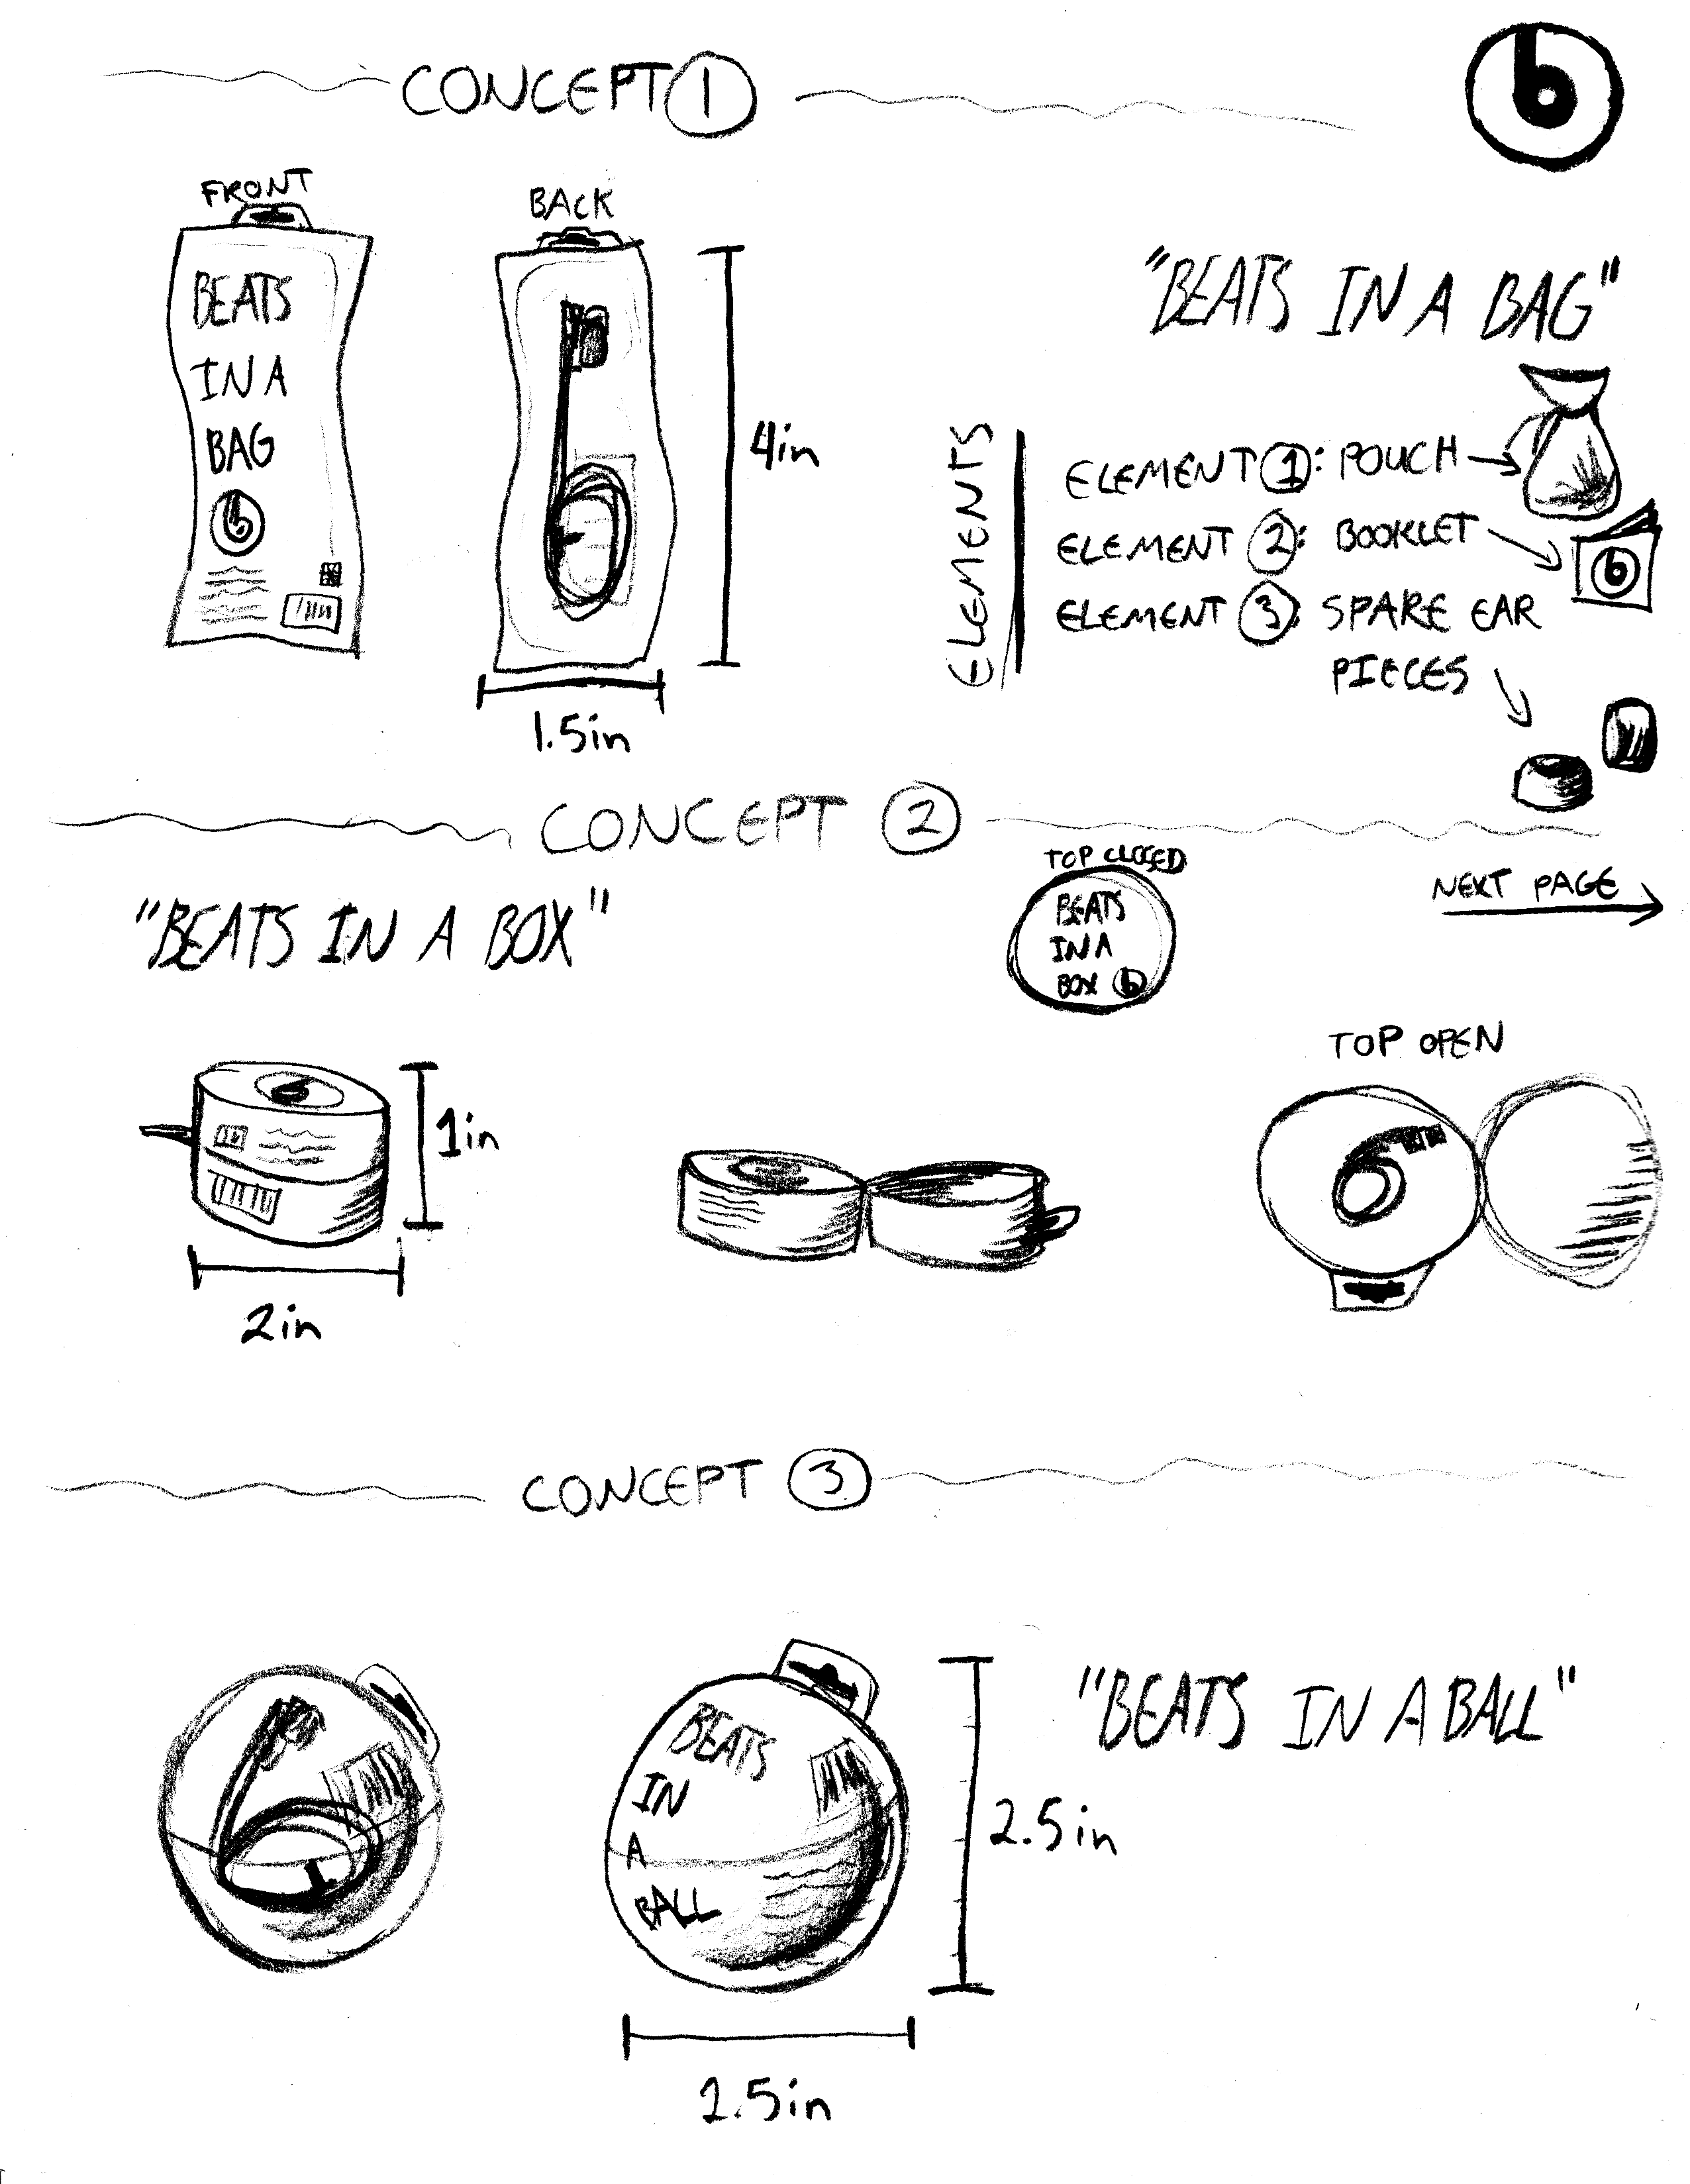 CONCEPT 1
b
FRONT
BACK
BEATS
IN A
BAG
b
4in
1.5in
"BEATS IN A BAG"
ELEMENTS
ELEMENT 1: POUCH
ELEMENT 2: BOOKLET
b
ELEMENT 3: SPARE EAR
PIECES
CONCEPT 2
"BEATS IN A BOX"
TOP CLOSED
BEATS
IN A
BOX b
NEXT PAGE
TOP OPEN
b
1in
2in
CONCEPT 3
BEATS
IN
A
BALL
2.5in
"BEATS IN A BALL"
2.5in